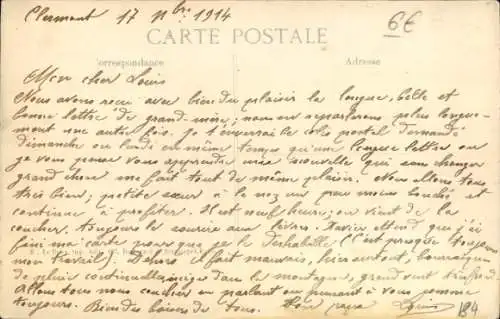 Clermont 17 Nbre 1914
6€
CARTE POSTALE
Correspondance
Adresse
Mon cher Louis
Nous avons reçu avec bien du plaisir la longue, belle et
bonne lettre de grand-mère; nous en reparlerons plus longue-
ment une autre fois. Je t'enverrai le colis postal demandé
dimanche ou lundi en même temps qu'une longue lettre ou
je vous pense vous apprendre une nouvelle qui sans changer
grand chose me fait tout de même plaisir. Nous allons tous
très bien; petite sœur a le nez un peu moins bouché et
continue à profiter. Il est neuf heures; on vient de la
coucher, toujours le sourire aux lèvres. Xavier attend que j'ai
fini ma carte pour que je le déshabille (C'est presque toujours
mon travail. Dehors il fait mauvais, hier surtout, bourrasques
de pluie continuelles, neige dans la montagne, grand vent
Allons tous nous coucher en parlant ou pensant à vous comme
toujours. Bien des baisers de tous. Ton papa
184